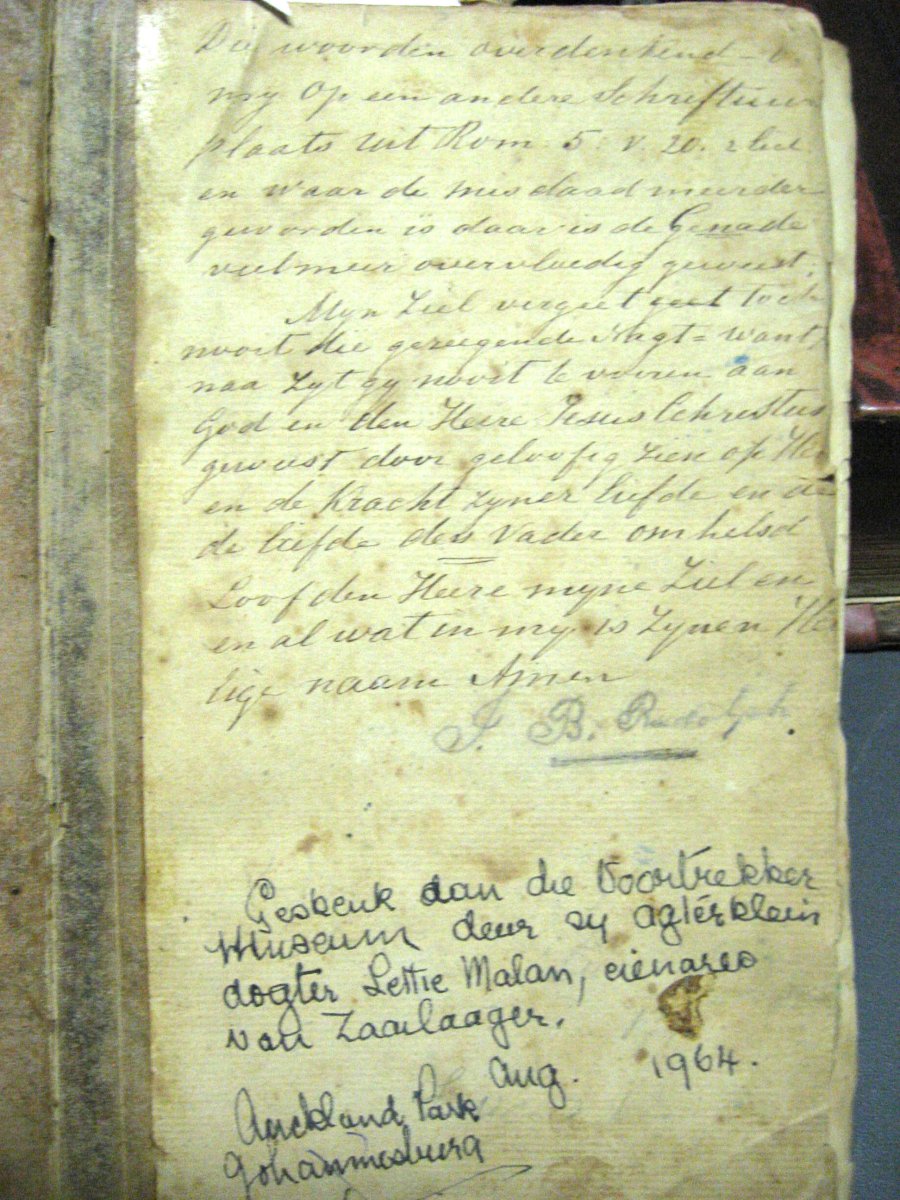 Die woorden overdenkend - o
my Op een andere Schriftuur
plaats Uit Rom. 5. v. 20.
en waar de misdaad meerder
geworden is daar is de Genade
veel meer overvloedig geweest.
Myn Ziel vergeet toch
nooit die gezegende Nagt = want
naa Zyt gy nooit te vooren aan
God en den Heere Jesus Christus
geweest door geloofig Zien op
en de Kracht Zyner liefde en
de liefde des Vader omhelsd
Loof den Heere myne Ziel en
en al wat in my is Zynen Hei
lige naam Amen
J. B. Rudolph
Geskenk aan die Voortrekker
Museum deur sy agterklein
dogter Lettie Malan, eienares
van Zaailaager.
Aug. 1964.
Auckland Park
Johannesburg